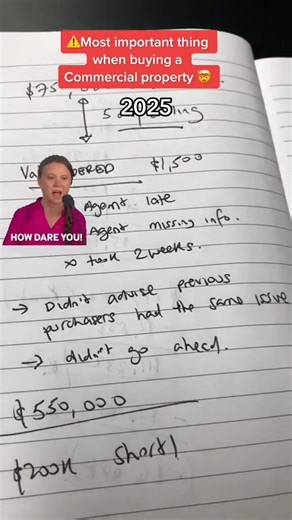 ⚠️Most important thing
when buying a
Commercial property 🤯
2025
$1,500
Agent late
HOW DARE YOU!
Agent missing info.
took 2 weeks.
→ Didn't advise previous
purchasers had the same issue
→ didn't go ahead.
$550,000
$200K short!